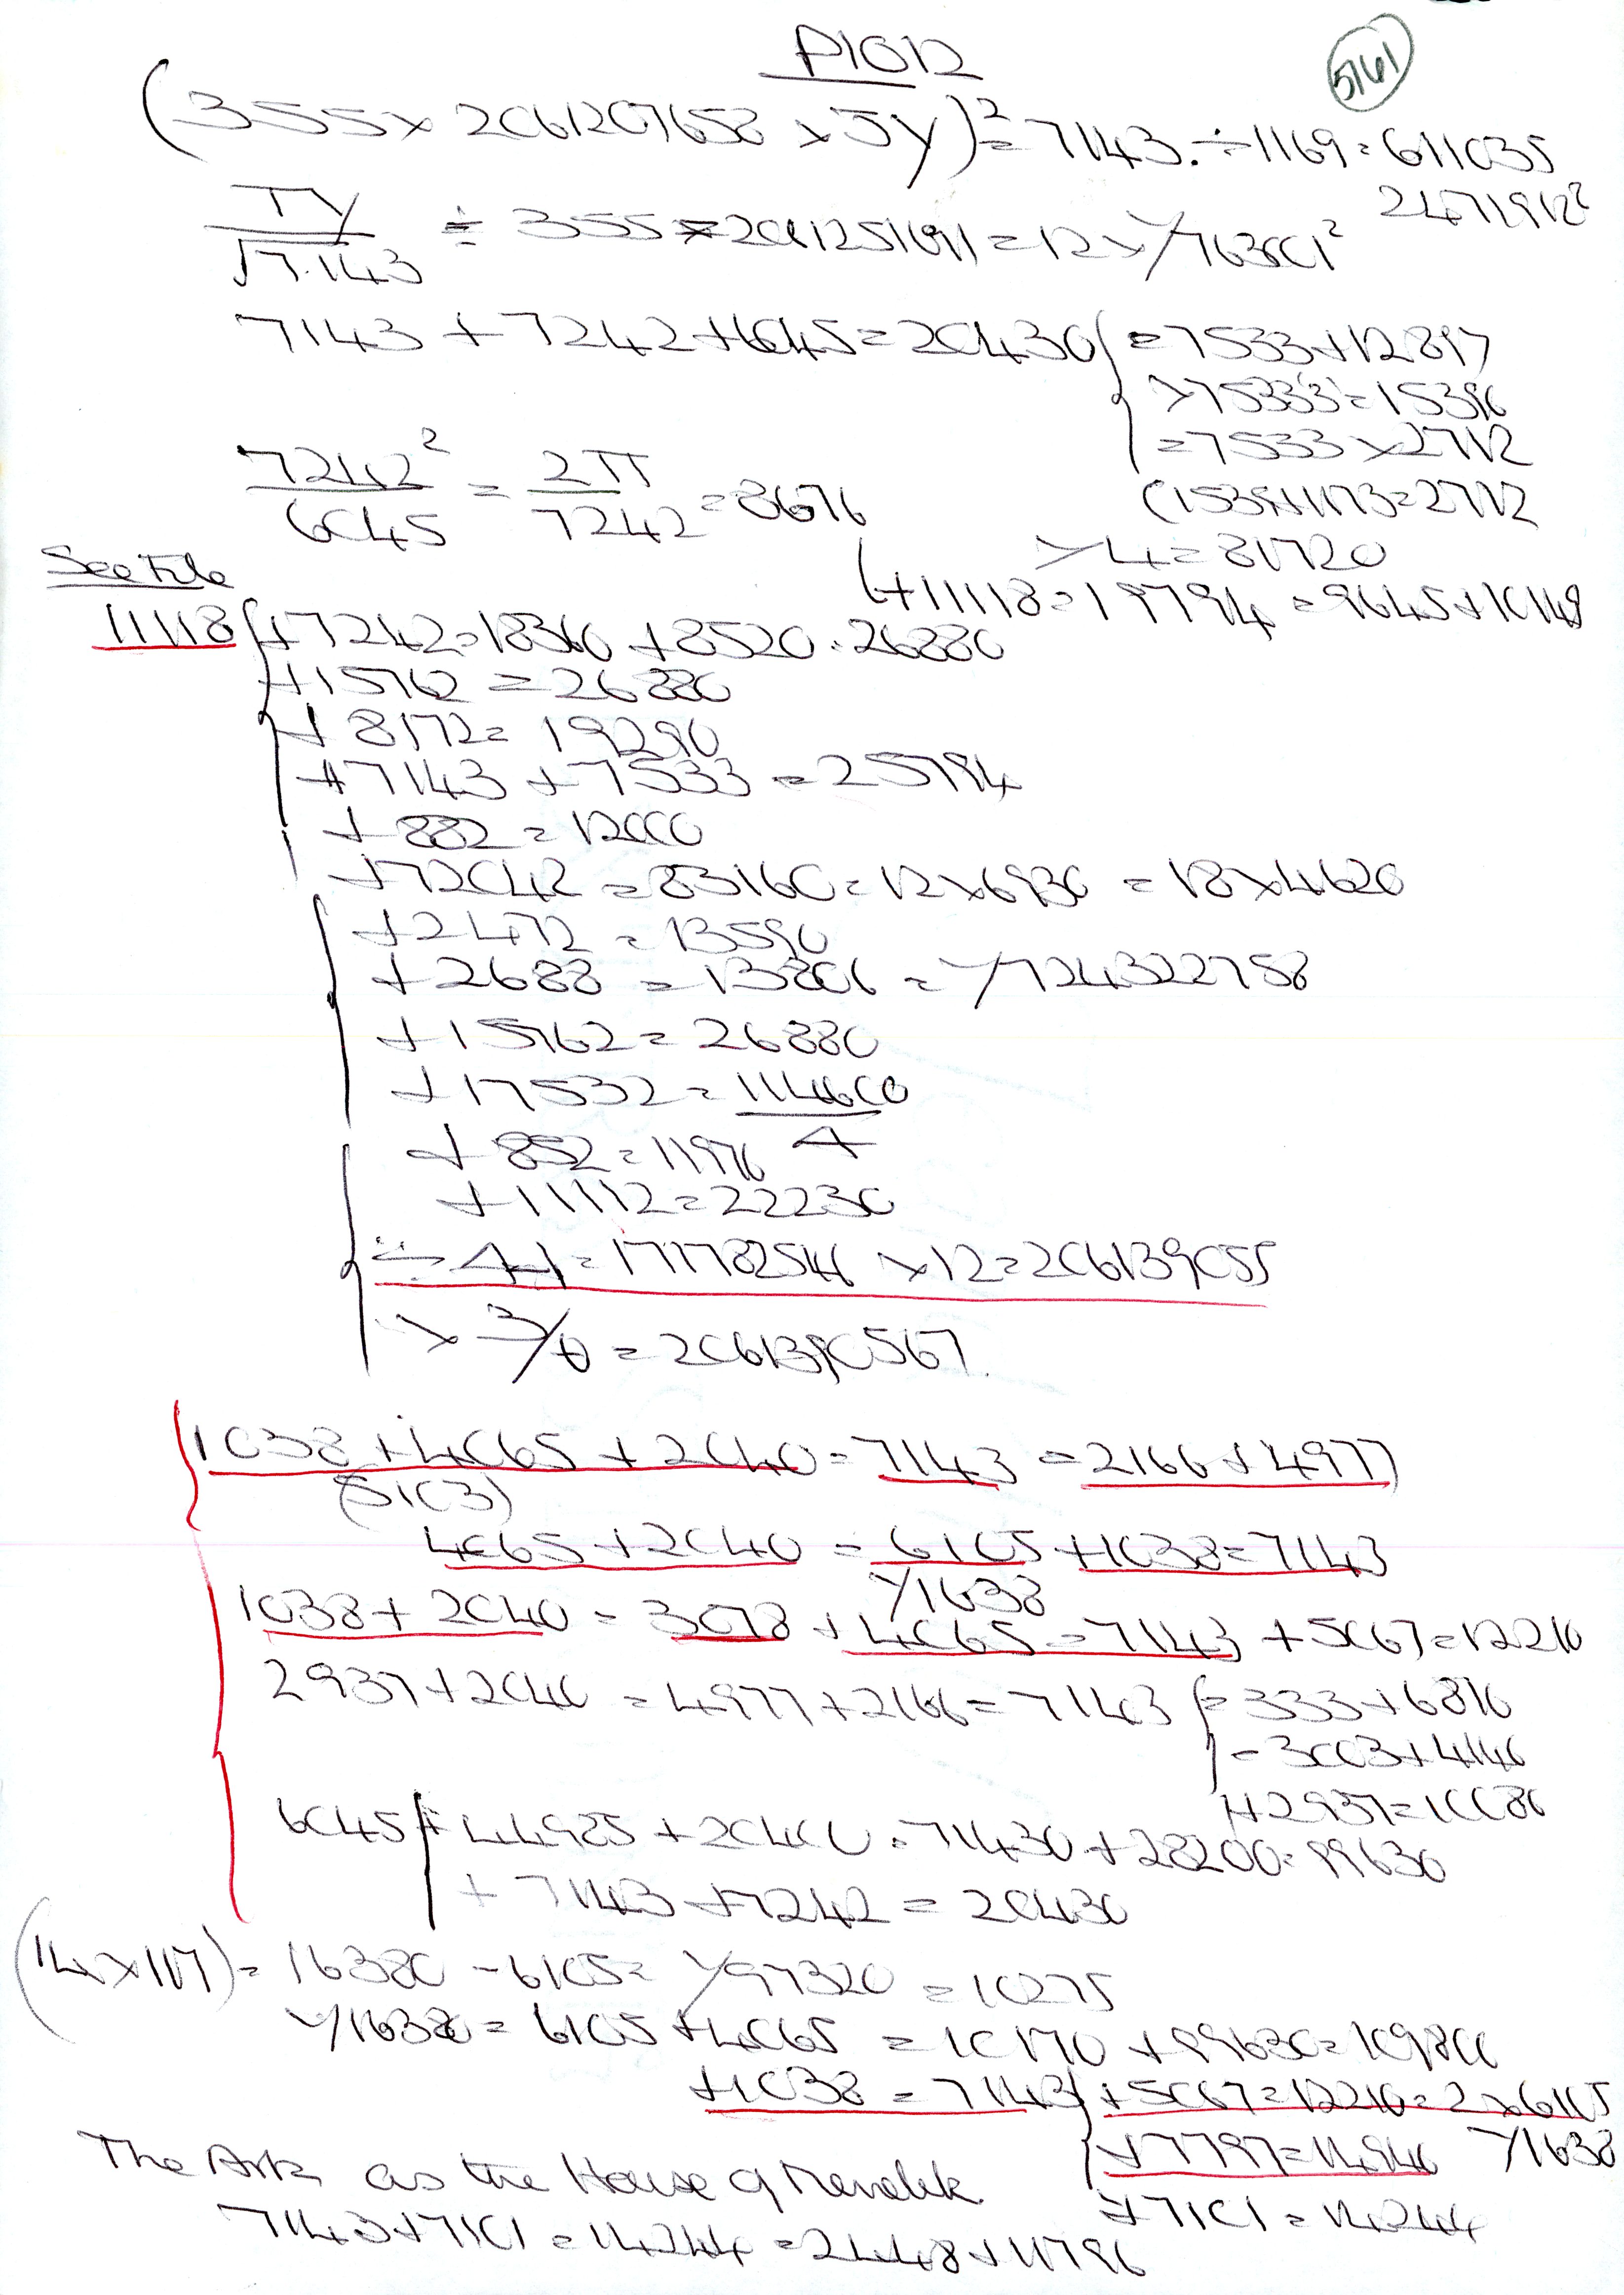 P1012
5161
(355 × 2061207658 × JY)² = 7143. ÷ 1169 = 611035
24719122
7143 + 7242 + 6045 = 20430 { = 7533 + 12897
= 7533 × 2712
7242² / 6045 = 2π / 7242 = 8676
× 4 = 81720
(+ 11118 = 19794 = 9645 + 10149
See File
11118 { + 7242 = 18360 + 8520 = 26880
+ 15762 = 26880
+ 8172 = 19290
+ 7143 + 7533 = 25794
+ 882 = 12000
+ 72042 = 83160 = 12 × 6930 = 18 × 4620
+ 2472 = 13590
+ 2688 = 13806 = Y724322758
+ 15762 = 26880
+ 17532 = 114600 / 4
+ 852 = 11970
+ 11112 = 22230
× 12 = 206139055
= 2061390567
1038 + 4065 + 2040 = 7143 = 2166 + 4977
(5103)
4065 + 2040 = 6105 + 1038 = 7143
Y1638
1038 + 2040 = 3078 + 4065 = 7143 + 5067 = 12210
2937 + 2040 = 4977 + 2166 = 7143 { = 333 + 6810
= 3003 + 4140
+ 2937 = 10080
6045 { + 44985 + 20400 = 71430 + 28200 = 99630
+ 7143 + 7242 = 20430
(14 × 117) = 16380 - 6105 = Y97320 = 10275
Y16380 = 6105 + 4065 = 10170 + 99630 = 109800
+ 1038 = 7143 { + 5067 = 12210 = 2 × 6105
+ 7797 = 14940 Y1638
The Ark as the House of Menelik
+ 7101 = 14244
7143 + 7101 = 14244 = 2448 + 11796